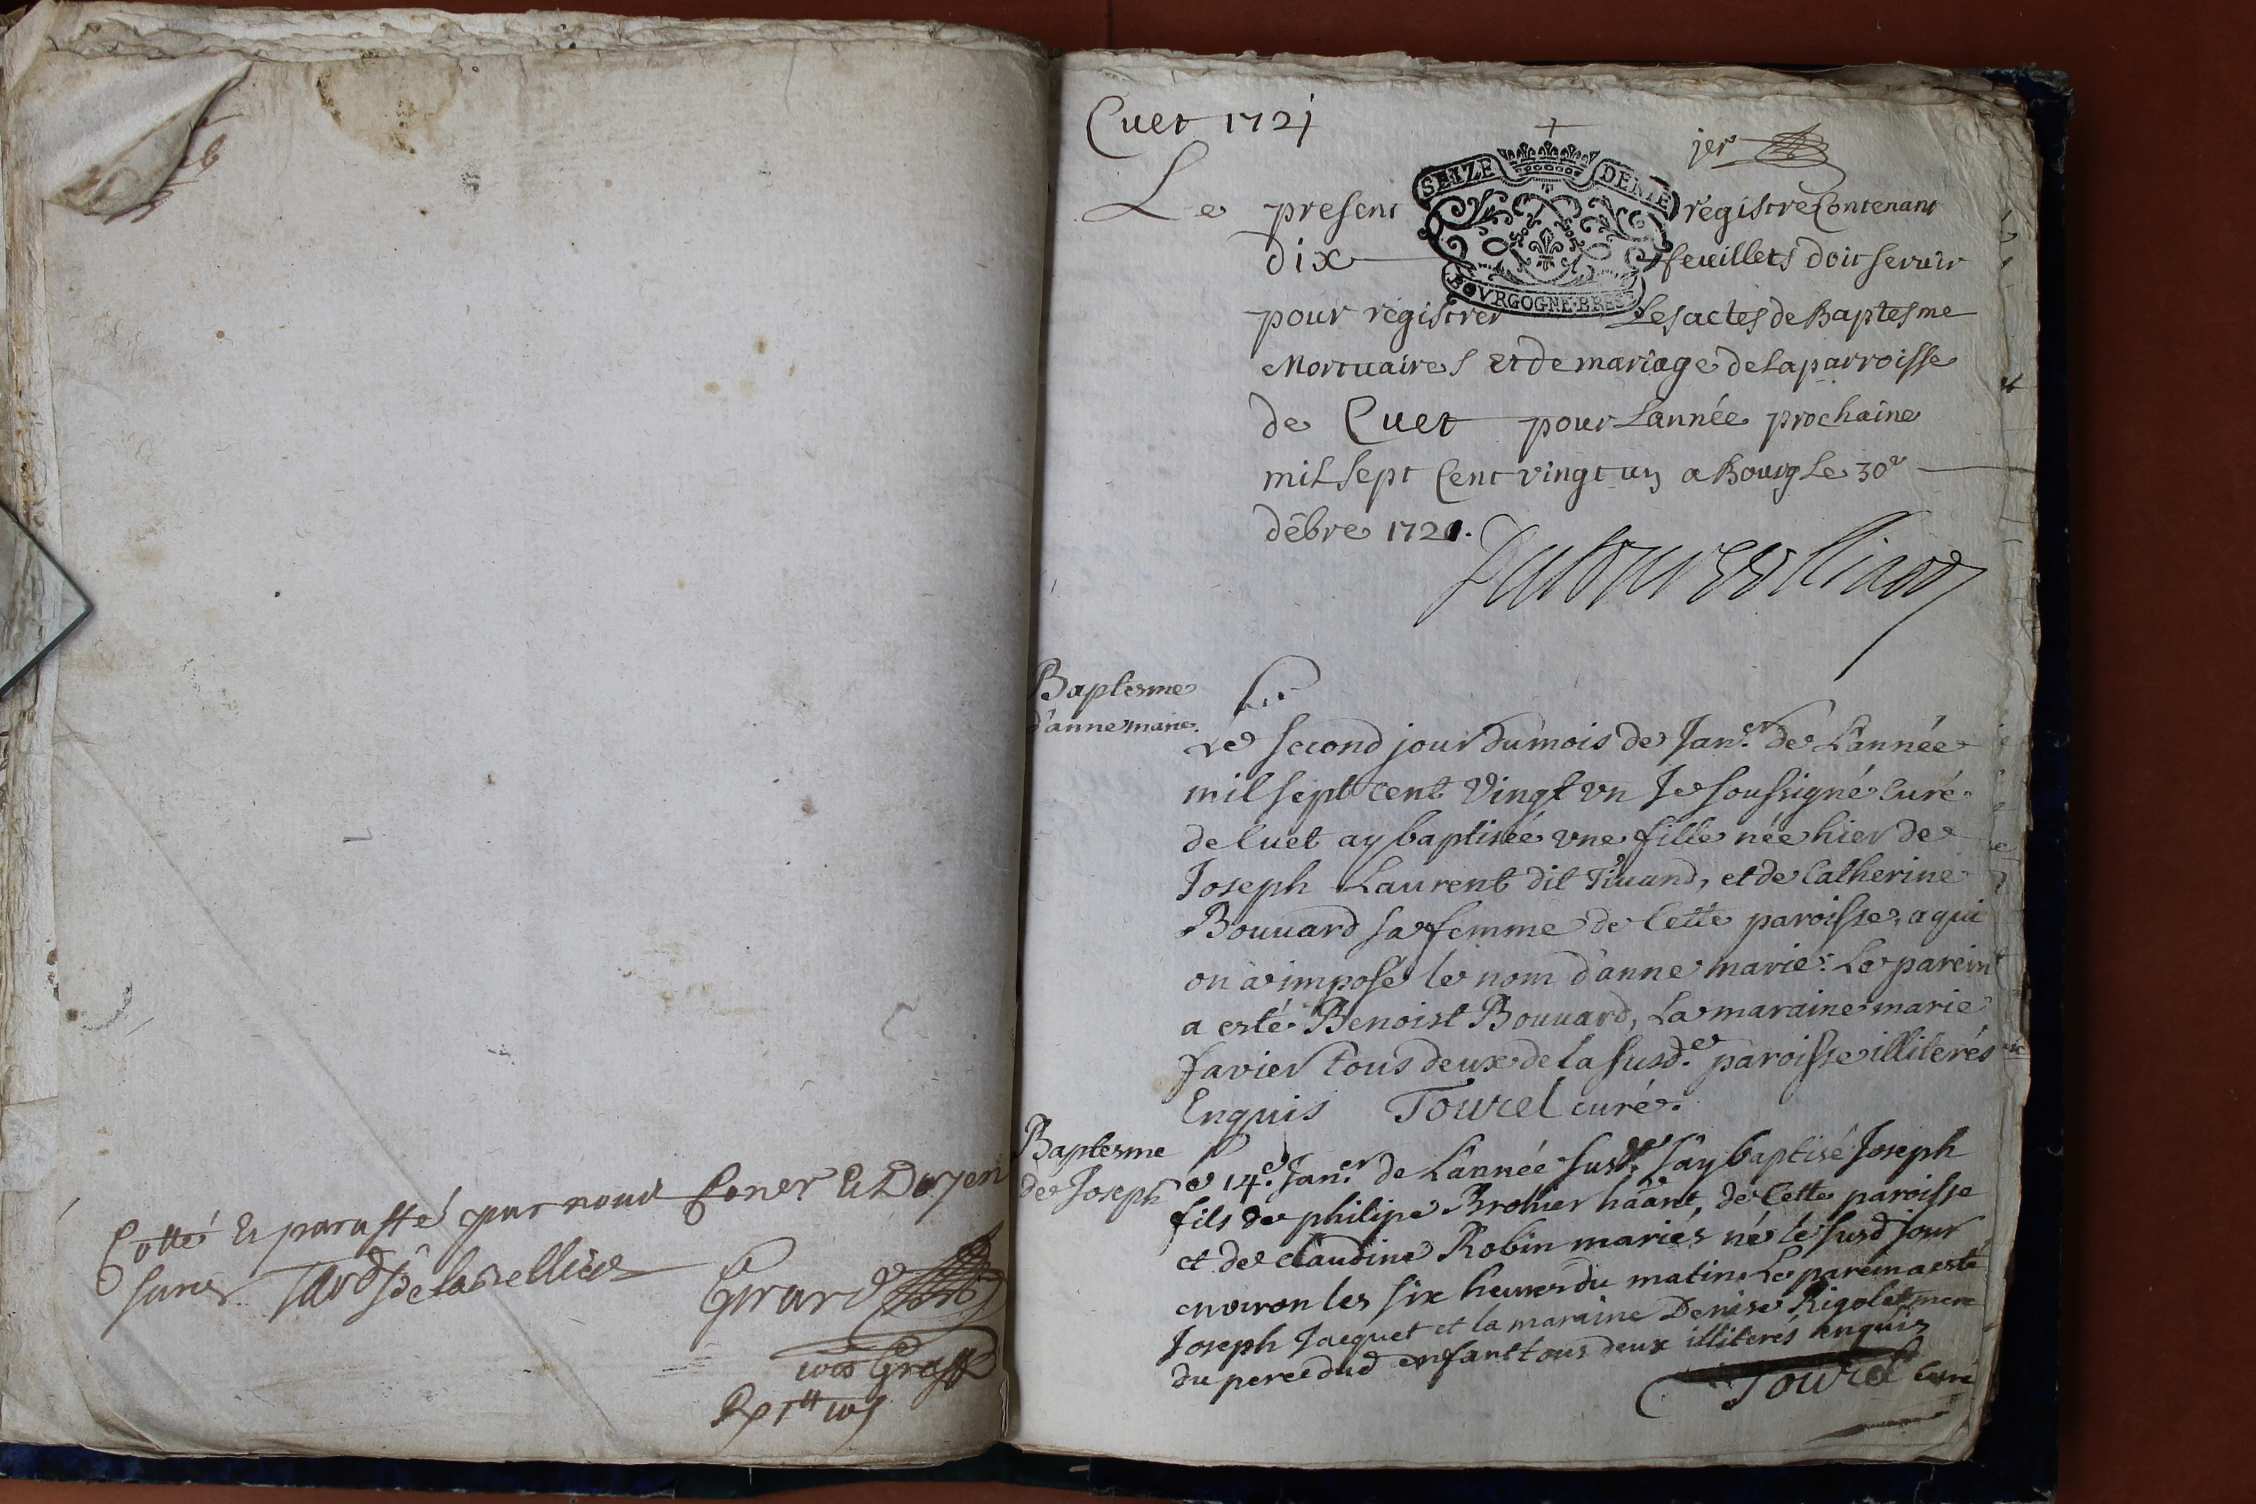 Cotté et paraffé par nous Coner et Doyen
Girard
Rx 1tt 10s
Cuet 1721
jer
SEIZE DENIE
BOVRGOGNE BRES
Le present régistre Contenant
dix feuillets doit servir
pour régistrer Les actes de Baptesme
Mortuaires et de mariage de La parroisse
de Cuet pour L'année prochaine
mil sept Cent vingt un a Bourg Le 30e
débre 1720.
Baptesme
d'anne marie.
Le second jour du mois de Janer. de L'année
mil sept cent vingt vn Je soussigné curé
de Cuet ay baptisée vne fille née hier de
Joseph Laurent dit Tiuand, et de Catherine
Bouuard sa femme de Cette paroisse, a qui
on a imposé le nom d'anne marie. Le parein
a esté Benoist Bouuard, La maraine marie
favier tous deux de la susde. paroisse illiterés
Enquis Tourel curé.
Baptesme
de Joseph
Le 14e. Janer. de L'année susde. J'ay baptisé Joseph
fils de philipe Brohier hãant, de Cette paroisse
et de claudine Robin mariés né le susd jour
environ les six heures du matin. Le parein a esté
Joseph Jacquet et la maraine Denise Rigolet mere
du pere dud enfant tous deux illiterés enquis
Tourel Curé